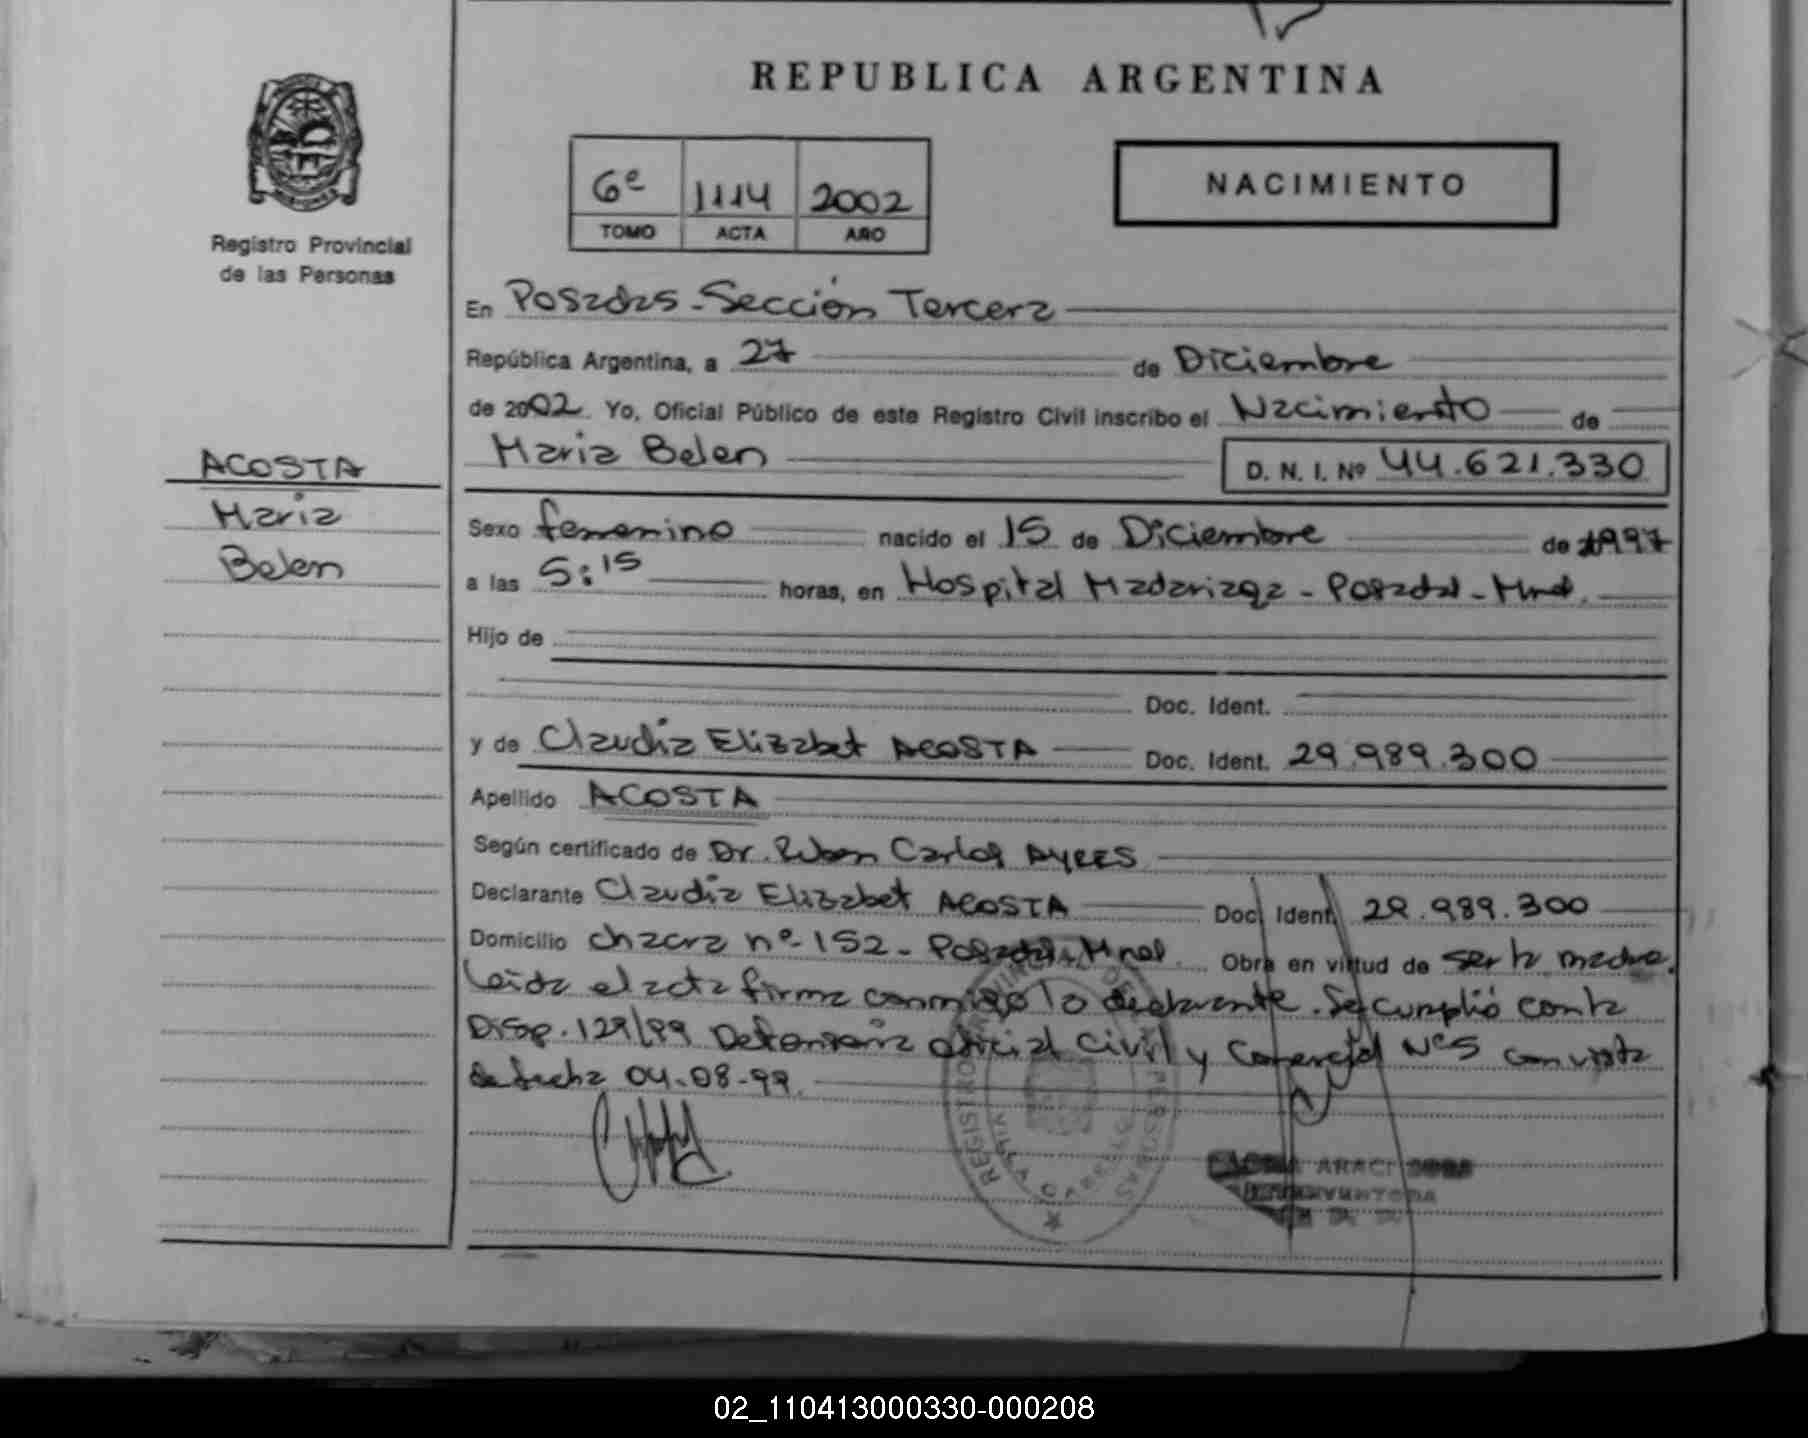 REPUBLICA ARGENTINA
Registro Provincial
de las Personas
6º 1114 2002
TOMO ACTA AÑO
NACIMIENTO
En Posadas - Sección Tercera
República Argentina, a 27 de Diciembre
de 2002. Yo, Oficial Público de este Registro Civil inscribo el Nacimiento de
Maria Belen D. N. I. Nº 44.621.330
ACOSTA
Maria
Belen
Sexo femenino nacido el 15 de Diciembre de 1997
a las 5:15 horas, en Hospital Madariaga - Posadas - Mnes.
Hijo de
Doc. Ident.
y de Claudia Elizabet ACOSTA Doc. Ident. 29.989.300
Apellido ACOSTA
Según certificado de Dr. Ruben Carlos AYRES
Declarante Claudia Elizabet ACOSTA Doc. Ident. 29.989.300
Domicilio chacra nº 152 - Posadas - Mnes. Obra en virtud de ser la madre.
Leida el acta firma conmigo la declarante. Se cumplió con la
Disp. 129/99 Defensoria oficial Civil y Comercial Nº5 con vista
de fecha 04-08-99.
REGISTRO PROVINCIAL DE LAS PERSONAS
ARACI
02_110413000330-000208